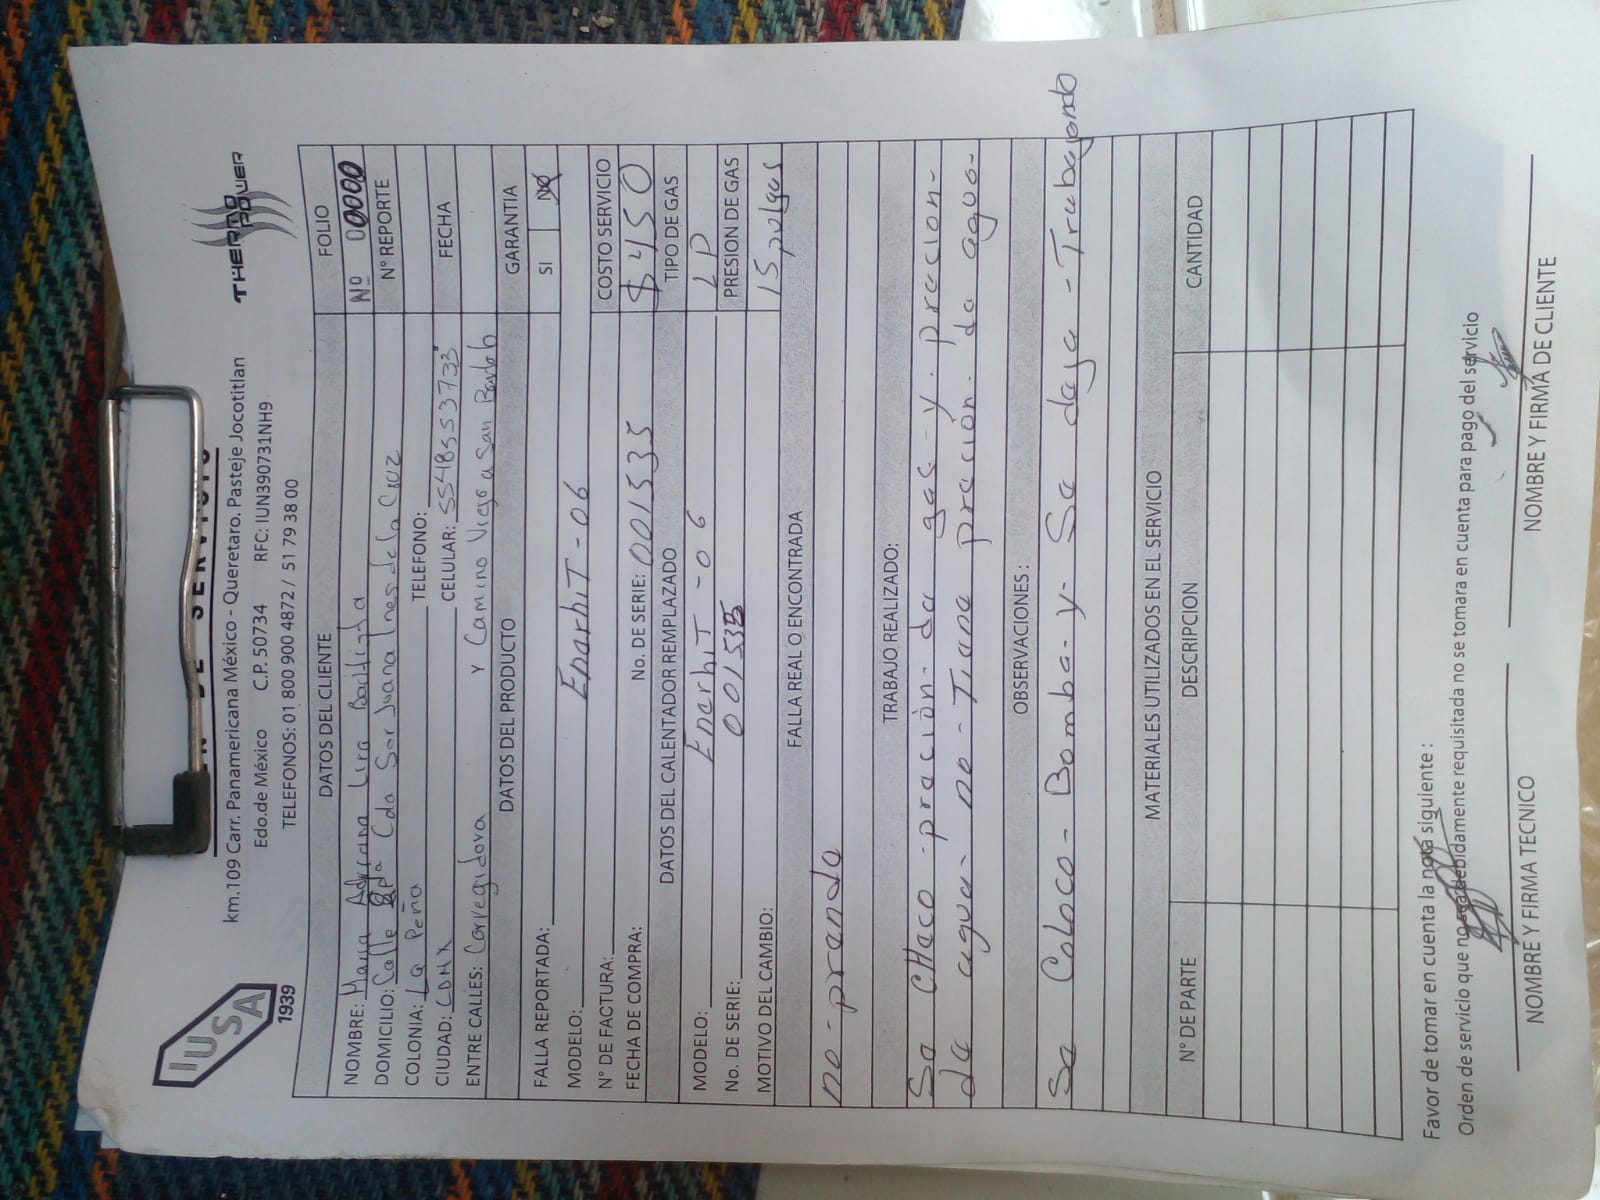 N DE SERVICIO
IUSA
1939
THERMO POWER
km.109 Carr. Panamericana México - Queretaro. Pasteje Jocotitlan
Edo.de México C.P. 50734 RFC: IUN390731NH9
TELEFONOS: 01 800 900 4872 / 51 79 38 00
DATOS DEL CLIENTE
FOLIO
NOMBRE: Maria Adriana Lira
Nº 00000
DOMICILIO: Calle 2da Cda Sor Juana Ines de la Cruz
N° REPORTE
COLONIA: La Peña TELEFONO:
CIUDAD: CDMX CELULAR: 5548553733
FECHA
ENTRE CALLES: Corregidora Y Camino Viejo a San
DATOS DEL PRODUCTO
GARANTIA
FALLA REPORTADA:
SI NO
MODELO: EnarhiT-06
N° DE FACTURA:
COSTO SERVICIO
FECHA DE COMPRA: No. DE SERIE: 001535
$450
DATOS DEL CALENTADOR REMPLAZADO
TIPO DE GAS
MODELO: EnarhiT-06
LP
No. DE SERIE: 001535
PRESION DE GAS
MOTIVO DEL CAMBIO:
15 pulgas
FALLA REAL O ENCONTRADA
no-prande
TRABAJO REALIZADO:
Sa CHaco-praciòn-da gas-y-pracion-
da agua-no-Tiana praciòn-da agua-
OBSERVACIONES:
Sa Coloco-Bomba-y-Sa daja-Trabajando
MATERIALES UTILIZADOS EN EL SERVICIO
N° DE PARTE DESCRIPCION CANTIDAD
Favor de tomar en cuenta la nota siguiente :
Orden de servicio que no sea debidamente requisitada no se tomara en cuenta para pago del servicio
NOMBRE Y FIRMA TECNICO NOMBRE Y FIRMA DE CLIENTE